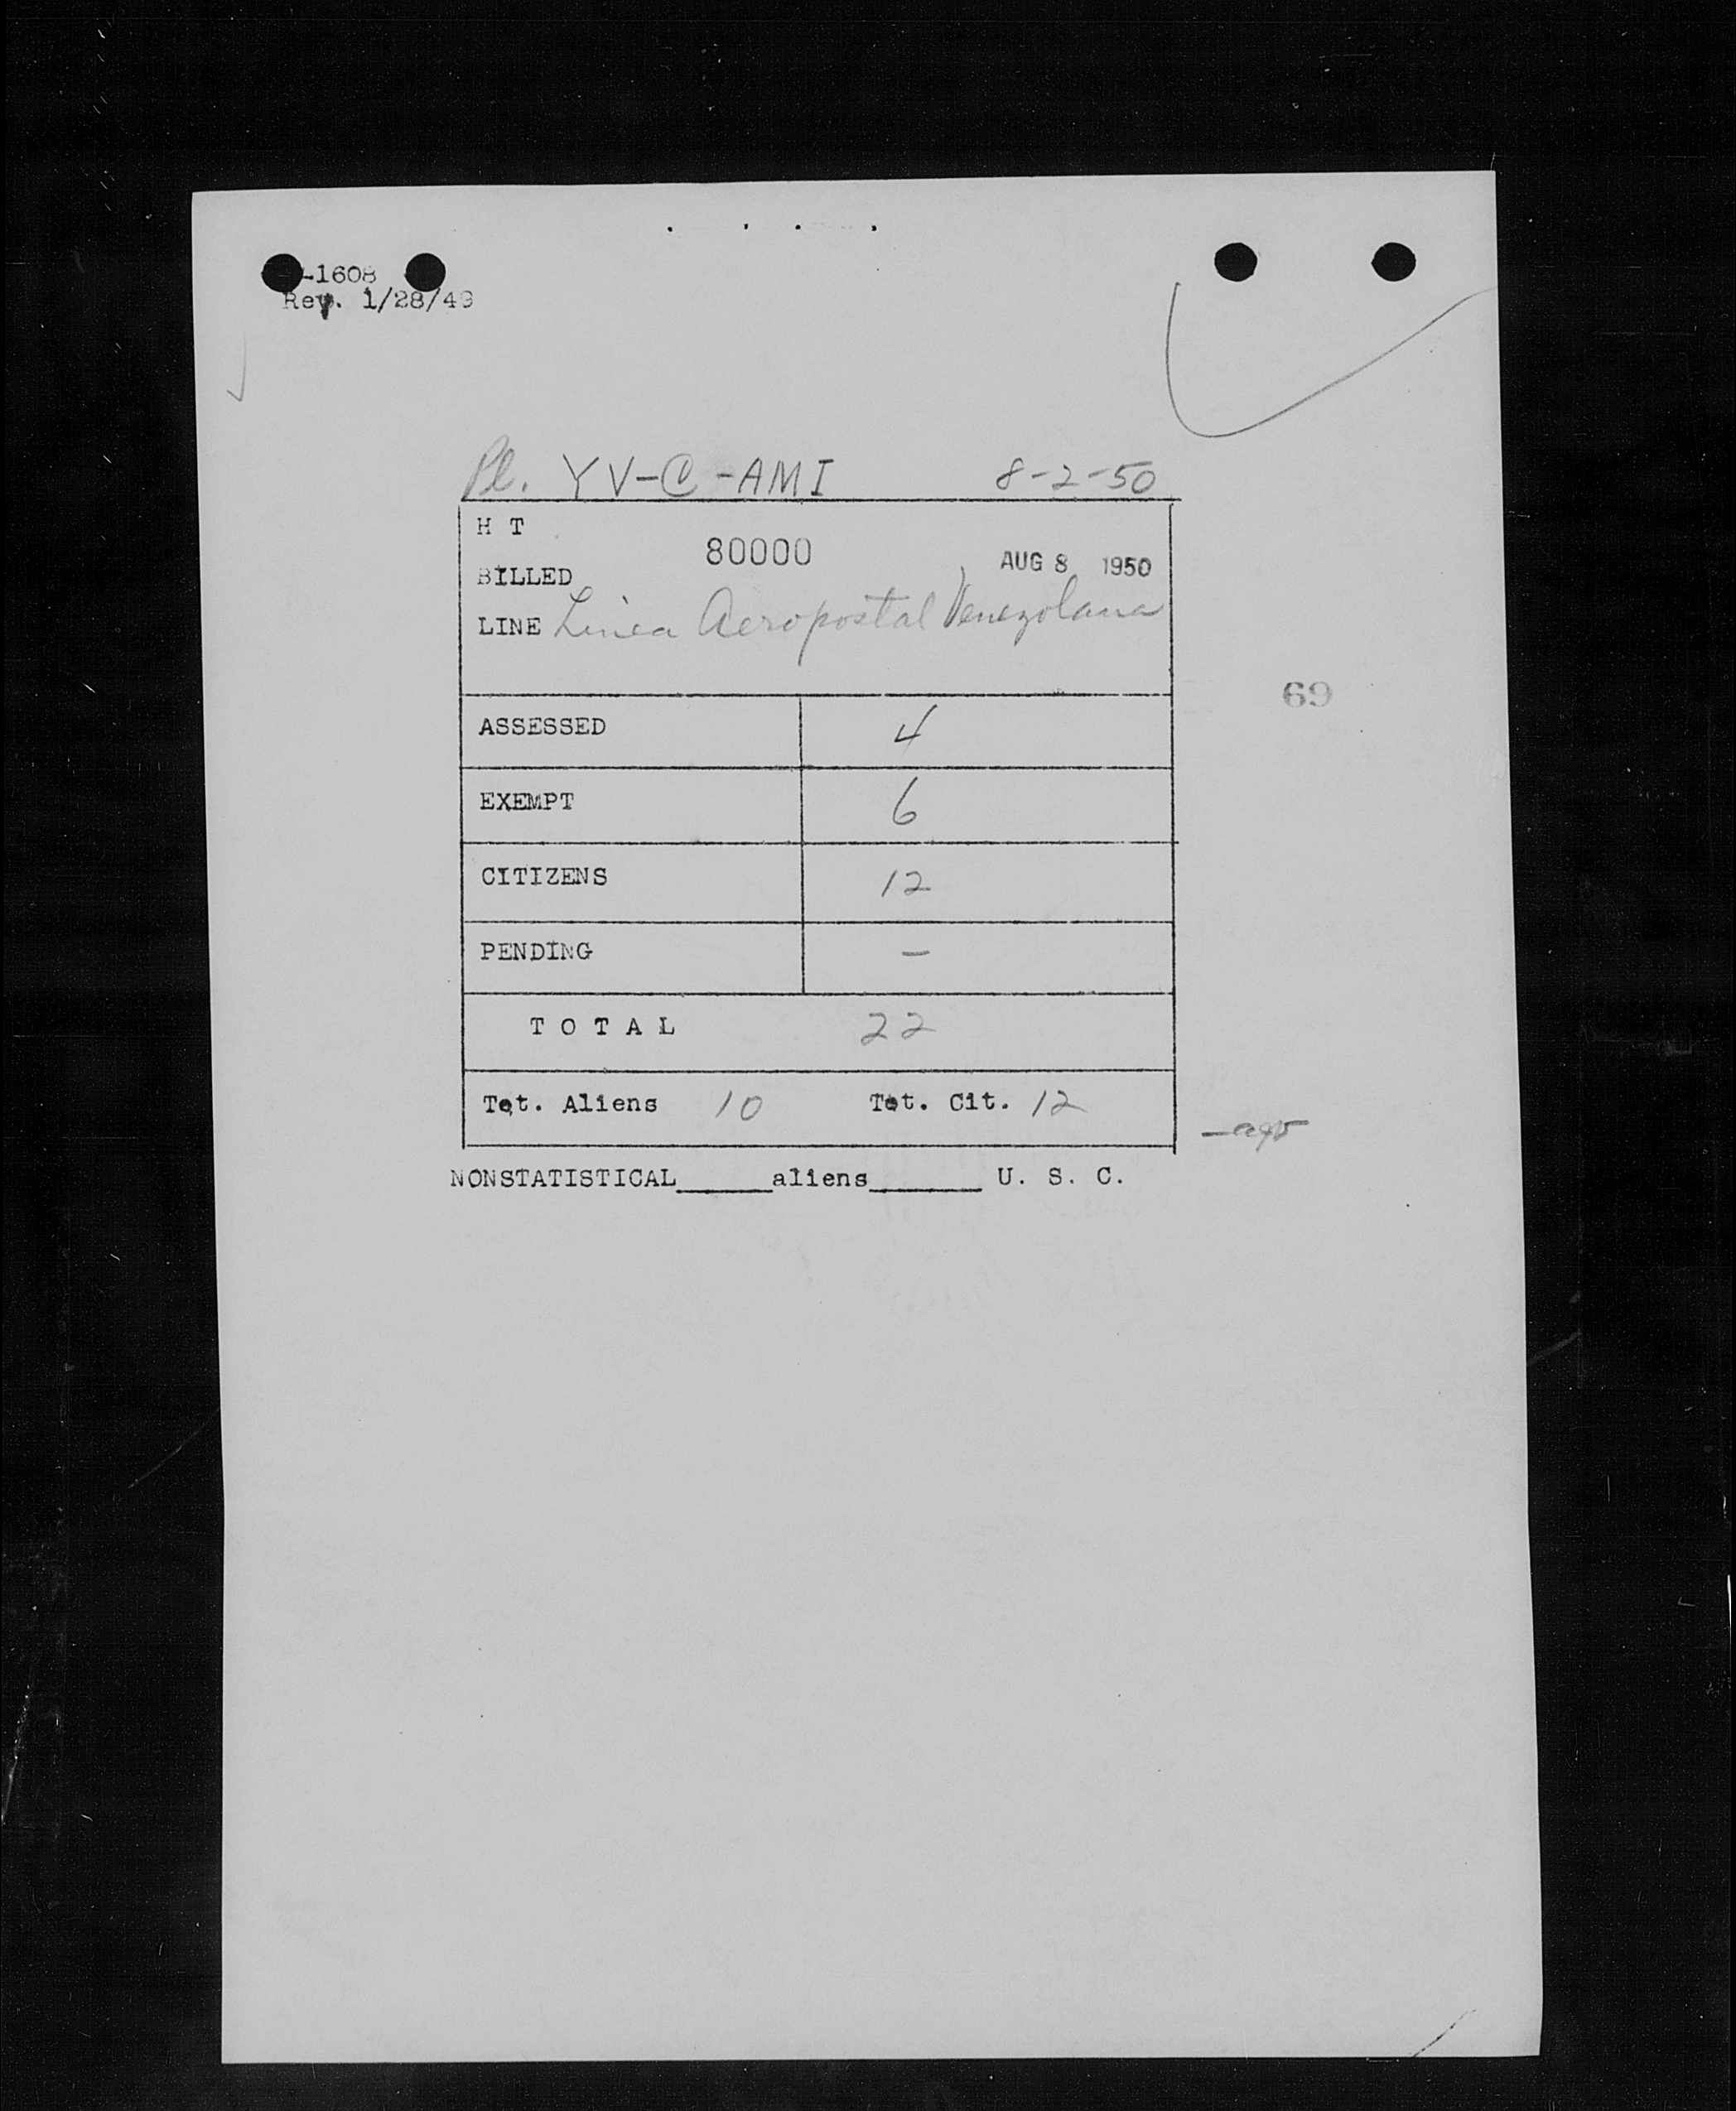 -1608
Rev. 1/28/49
Pl. YV-C-AMI 8-2-50
H T
80000 AUG 8 1950
BILLED
LINE Linea Aeropostal Venezolana
69
ASSESSED 4
EXEMPT 6
CITIZENS 12
PENDING –
T O T A L 22
Tot. Aliens 10 Tot. Cit. 12
NONSTATISTICAL______aliens_______ U. S. C.